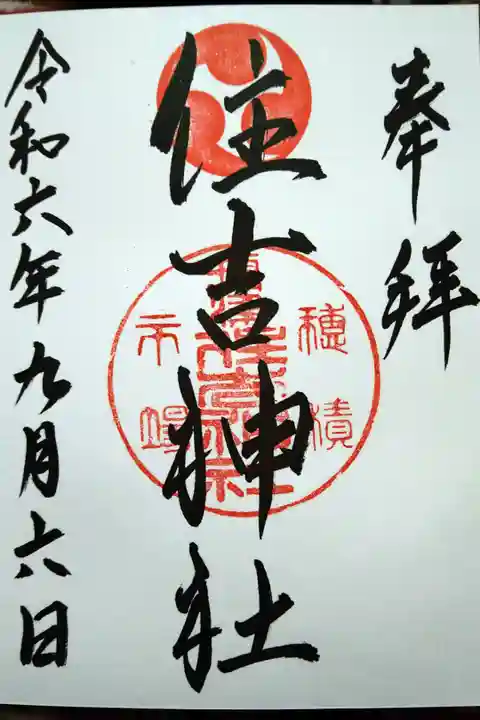 奉拝
住吉神社
穂積
市場
令和六年九月六日